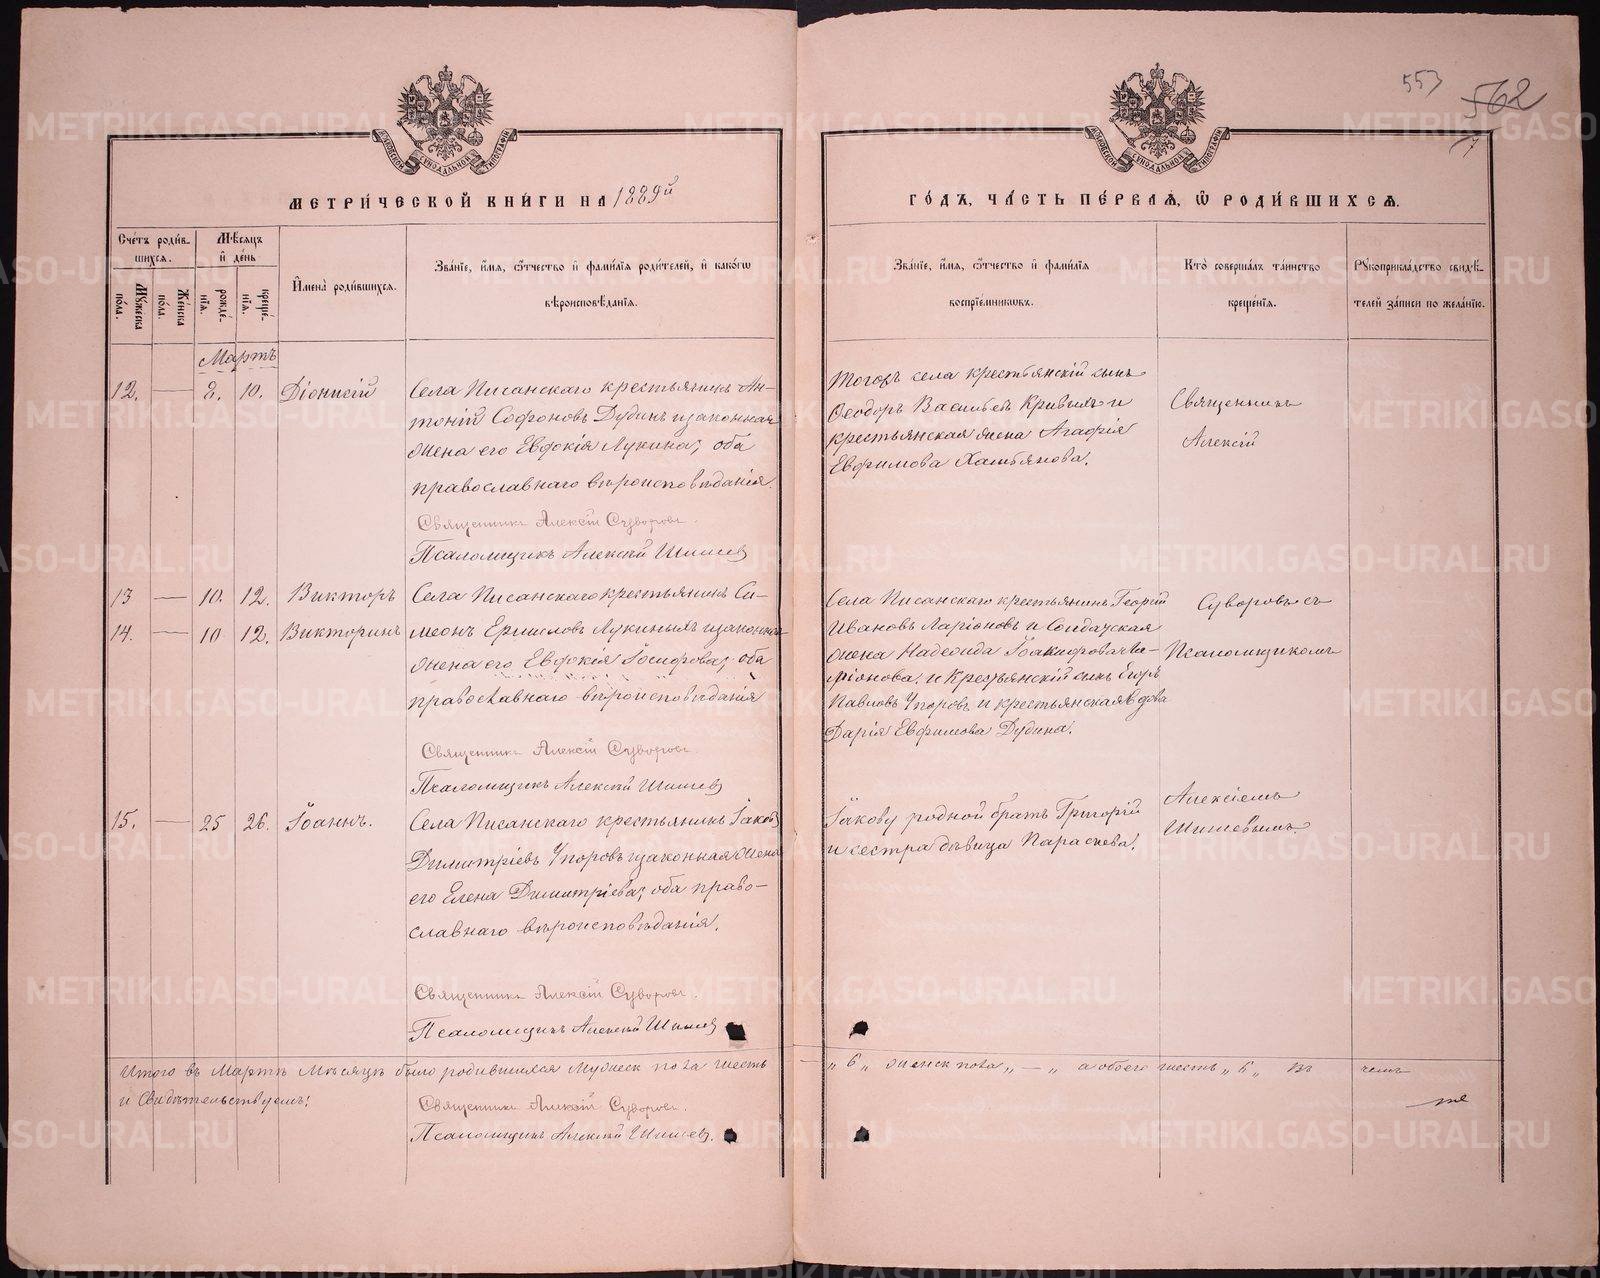 553
562
МЕТРИЧЕСКОЙ КНИГИ НА 1889й
ГОДЪ, ЧАСТЬ ПЕРВАЯ, Ѡ РОДИВШИХСЯ.
Счетъ родив-
шихся.
Мужеска пола.
Женска пола.
Мѣсяцъ и день
рожде-
нія.
креще-
нія.
Имена родившихся.
Званіе, имя, отчество и фамилія родителей, и какогѡ
вѣроисповѣданія.
Званіе, имя, отчество и фамилія
воспріемниковъ.
Кто совершалъ таинство
крещенія.
Рукоприкладство свидѣ-
телей записи по желанію.
Мартъ
12. — 8. 10. Діонисій
Села Писанскаго крестьянинъ Ан-
тоній Софроновъ Дудинъ и законная
жена его Евдокія Лукина; оба
православнаго вѣроисповѣданія.
Священникъ Алексій Суворовъ.
Псаломщикъ Алексѣй Шишев
Тогожъ села крестьянскій сынъ
Ѳеодоръ Васильевъ и
крестьянская жена Агафія
Евфимова
Священникъ
Алексій
13 — 10. 12. Викторъ
14. — 10 12. Викторинъ
Села Писанскаго крестьянинъ Си-
меонъ Лукиныхъ и законная
жена его Евдокія Іосифова; оба
православнаго вѣроисповѣданія
Священникъ Алексій Суворовъ.
Псаломщикъ Алексѣй Шишев
Села Писанскаго крестьянинъ Георгій
Ивановъ Ларіоновъ и Солдатская
жена Надежда Ла-
ріонова. и Крестьянскій сынъ Егоръ
Павловъ Упоровъ и крестьянская вдова
Дарія Евфимова Дудина.
Суворовъ съ
Псаломщикомъ
15. — 25 26. Іоаннъ.
Села Писанскаго крестьянинъ Іаковъ
Димитріевъ Упоровъ и законная жена
его Елена Димитріева; оба право-
славнаго вѣроисповѣданія.
Священникъ Алексій Суворовъ.
Псаломщикъ Алексѣй Шишев
Іакову родной братъ Григорій
и сестра дѣвица Параскева.
Алексіемъ
Шишевымъ.
Итого въ Мартѣ Мѣсяцѣ было родившихся Мужеск пола шесть „ 6 „ женск пола „ — „ а обоего шесть „ 6 „ въ чемъ
и Свидѣтельствуемъ!
Священникъ Алексій Суворовъ.
Псаломщикъ Алексѣй Шишев.
METRIKI.GASO-URAL.RU